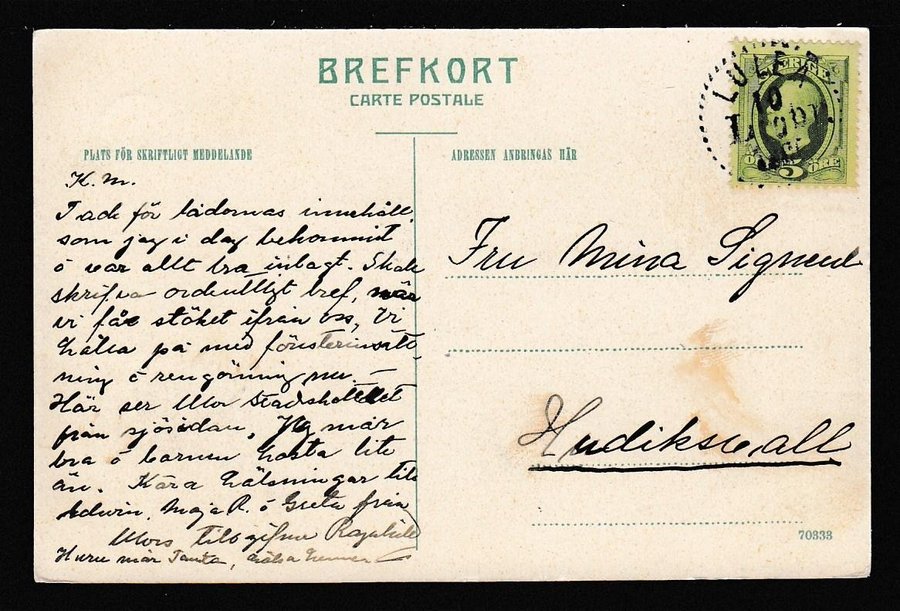 BREFKORT
CARTE POSTALE
PLATS FÖR SKRIFTLIGT MEDDELANDE
ADRESSEN ANDRINGAS HÄR
SVERIGE
LULEÅ
10
5
ÖRE
K. M.
Tack för lådornas innehåll,
som jag i dag bekommit
ö var allt bra inlagt. Skall
skrifva ordentligt bref, när
vi får stöket ifrån oss, Vi
hålla på med fönsterinsätt-
ning ö rengörning nu. –
Här ser Mor Stadshotellet
från sjösidan, Jag mår
bra ö barnen hosta lite
än. Kära hälsningar till
Edwin, Maja R. ö Greta från
Mors tillgifna Ragnhild
Huru mår Tanta, hälsa henne
Fru Mina Signeul
Hudikswall
70333